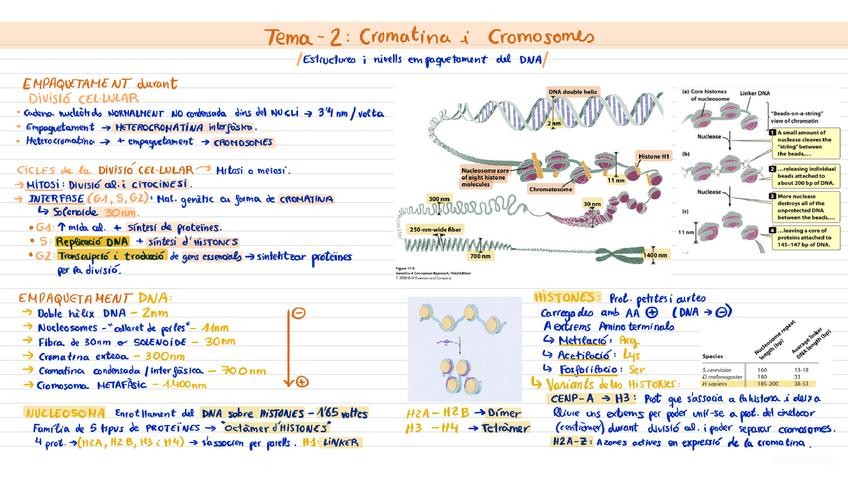 Tema-2: Cromatina i Cromosomes
/Estructures i nivells empaquetament del DNA/
EMPAQUETAMENT durant
DIVISIÓ CEL·LULAR
• Cadena nucleòtids NORMALMENT NO condensada dins del NUCLI → 3'4 nm / volta
• Empaquetament → HETEROCROMATINA interfàsica.
• Heterocromatina → + empaquetament → CROMOSOMES
CICLES de la DIVISIÓ CEL·LULAR → Mitosi o meiosi.
→ MITOSI: Divisió cel. i citocinesi.
→ INTERFASE (G1, S, G2): Mat. genètic en forma de CROMATINA
↳ Solenoide 30nm.
• G1: ↑ mida cel. + síntesi de proteïnes.
• S: Replicació DNA + síntesi d'HISTONES
• G2: Transcripció i traducció de gens essencials → sintetitzar proteïnes
per la divisió.
DNA double helix
2 nm
Histone H1
Nucleosome core
of eight histone
molecules
Chromatosome
11 nm
300 nm
30 nm
250-nm-wide fiber
700 nm
1400 nm
Figure 11.5
Genetics: A Conceptual Approach, Third Edition
© 2009 W. H. Freeman and Company
(a) Core histones
of nucleosome
Linker DNA
"Beads-on-a-string"
view of chromatin
Nuclease
1 A small amount of
nuclease cleaves the
"string" between
the beads,…
(b)
2 …releasing individual
beads attached to
about 200 bp of DNA.
Nuclease
3 More nuclease
destroys all of the
unprotected DNA
between the beads,…
(c)
11 nm
4 …leaving a core of
proteins attached to
145–147 bp of DNA.
EMPAQUETAMENT DNA:
→ Doble hèlix DNA - 2nm
→ Nucleosomes - "collaret de perles" - 11nm
→ Fibra de 30nm o SOLENOIDE - 30nm
→ Cromatina extesa - 300nm
→ Cromatina condensada / interfàsica - 700nm
→ Cromosoma METAFÀSIC - 1.400nm
NUCLEOSOMA Enrotllament del DNA sobre HISTONES - 1'65 voltes
Família de 5 tipus de PROTEÏNES → "octàmer d'HISTONES"
4 prot. → (H2A, H2B, H3 i H4) → s'associen per parells. H1: LINKER
H2A - H2B → Dímer
H3 - H4 → Tetràmer
HISTONES: Prot. petites i curtes
Carregades amb AA ⊕ (DNA → ⊖)
A extrems Amino terminals
↳ Metilació: Arg
↳ Acetilació: Lys
↳ Fosforilació: Ser
↳ Variants de les HISTONES:
Species
Nucleosome repeat
length (bp)
Average linker
DNA length (bp)
S. cerevisiae 160 13-18
D. melanogaster 180 33
H. sapiens 185-200 38-53
CENP-A → H3: Prot que s'associa a la histona i deixa
lliure uns extrems per poder unir-se a prot. del cinetocor
(centròmer) durant divisió cel. i poder separar cromosomes.
H2A-Z: A zones actives en expressió de la cromatina.